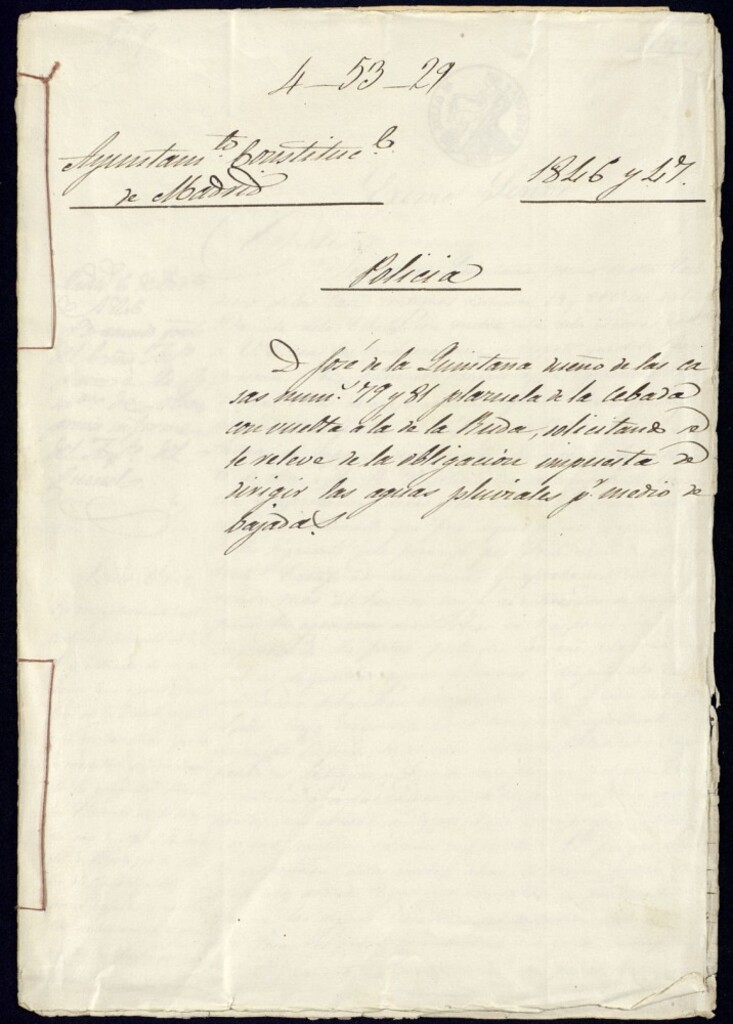 4-53-29
Ayuntam.to Constituc.l
de Madrid
1846 y 47.
Policia
D. José de la Quintana dueño de las ca
sas num.s 79 y 81 plazuela de la Cebada
con vuelta a la de la Ruda, solicitando se
le releve de la obligacion impuesta de
dirigir las aguas pluviales p.r medio de
bajadas